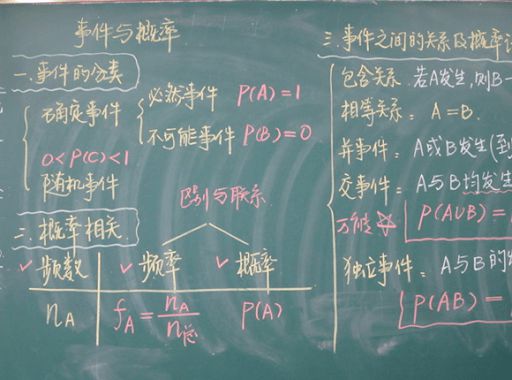 事件与概率
一.事件的分类
确定事件
必然事件 P(A)=1
不可能事件 P(B)=0
0<P(C)<1
随机事件
区别与联系
二.概率相关
✓频数 ✓频率 ✓概率
n_A f_A = n_A/n总 P(A)
三.事件之间的关系及概率
包含关系:若A发生,则B一
相等关系:A=B.
并事件:A或B发生(到
交事件:A与B均发生
万能☆ P(A∪B)=
独立事件:A与B的
P(AB)=